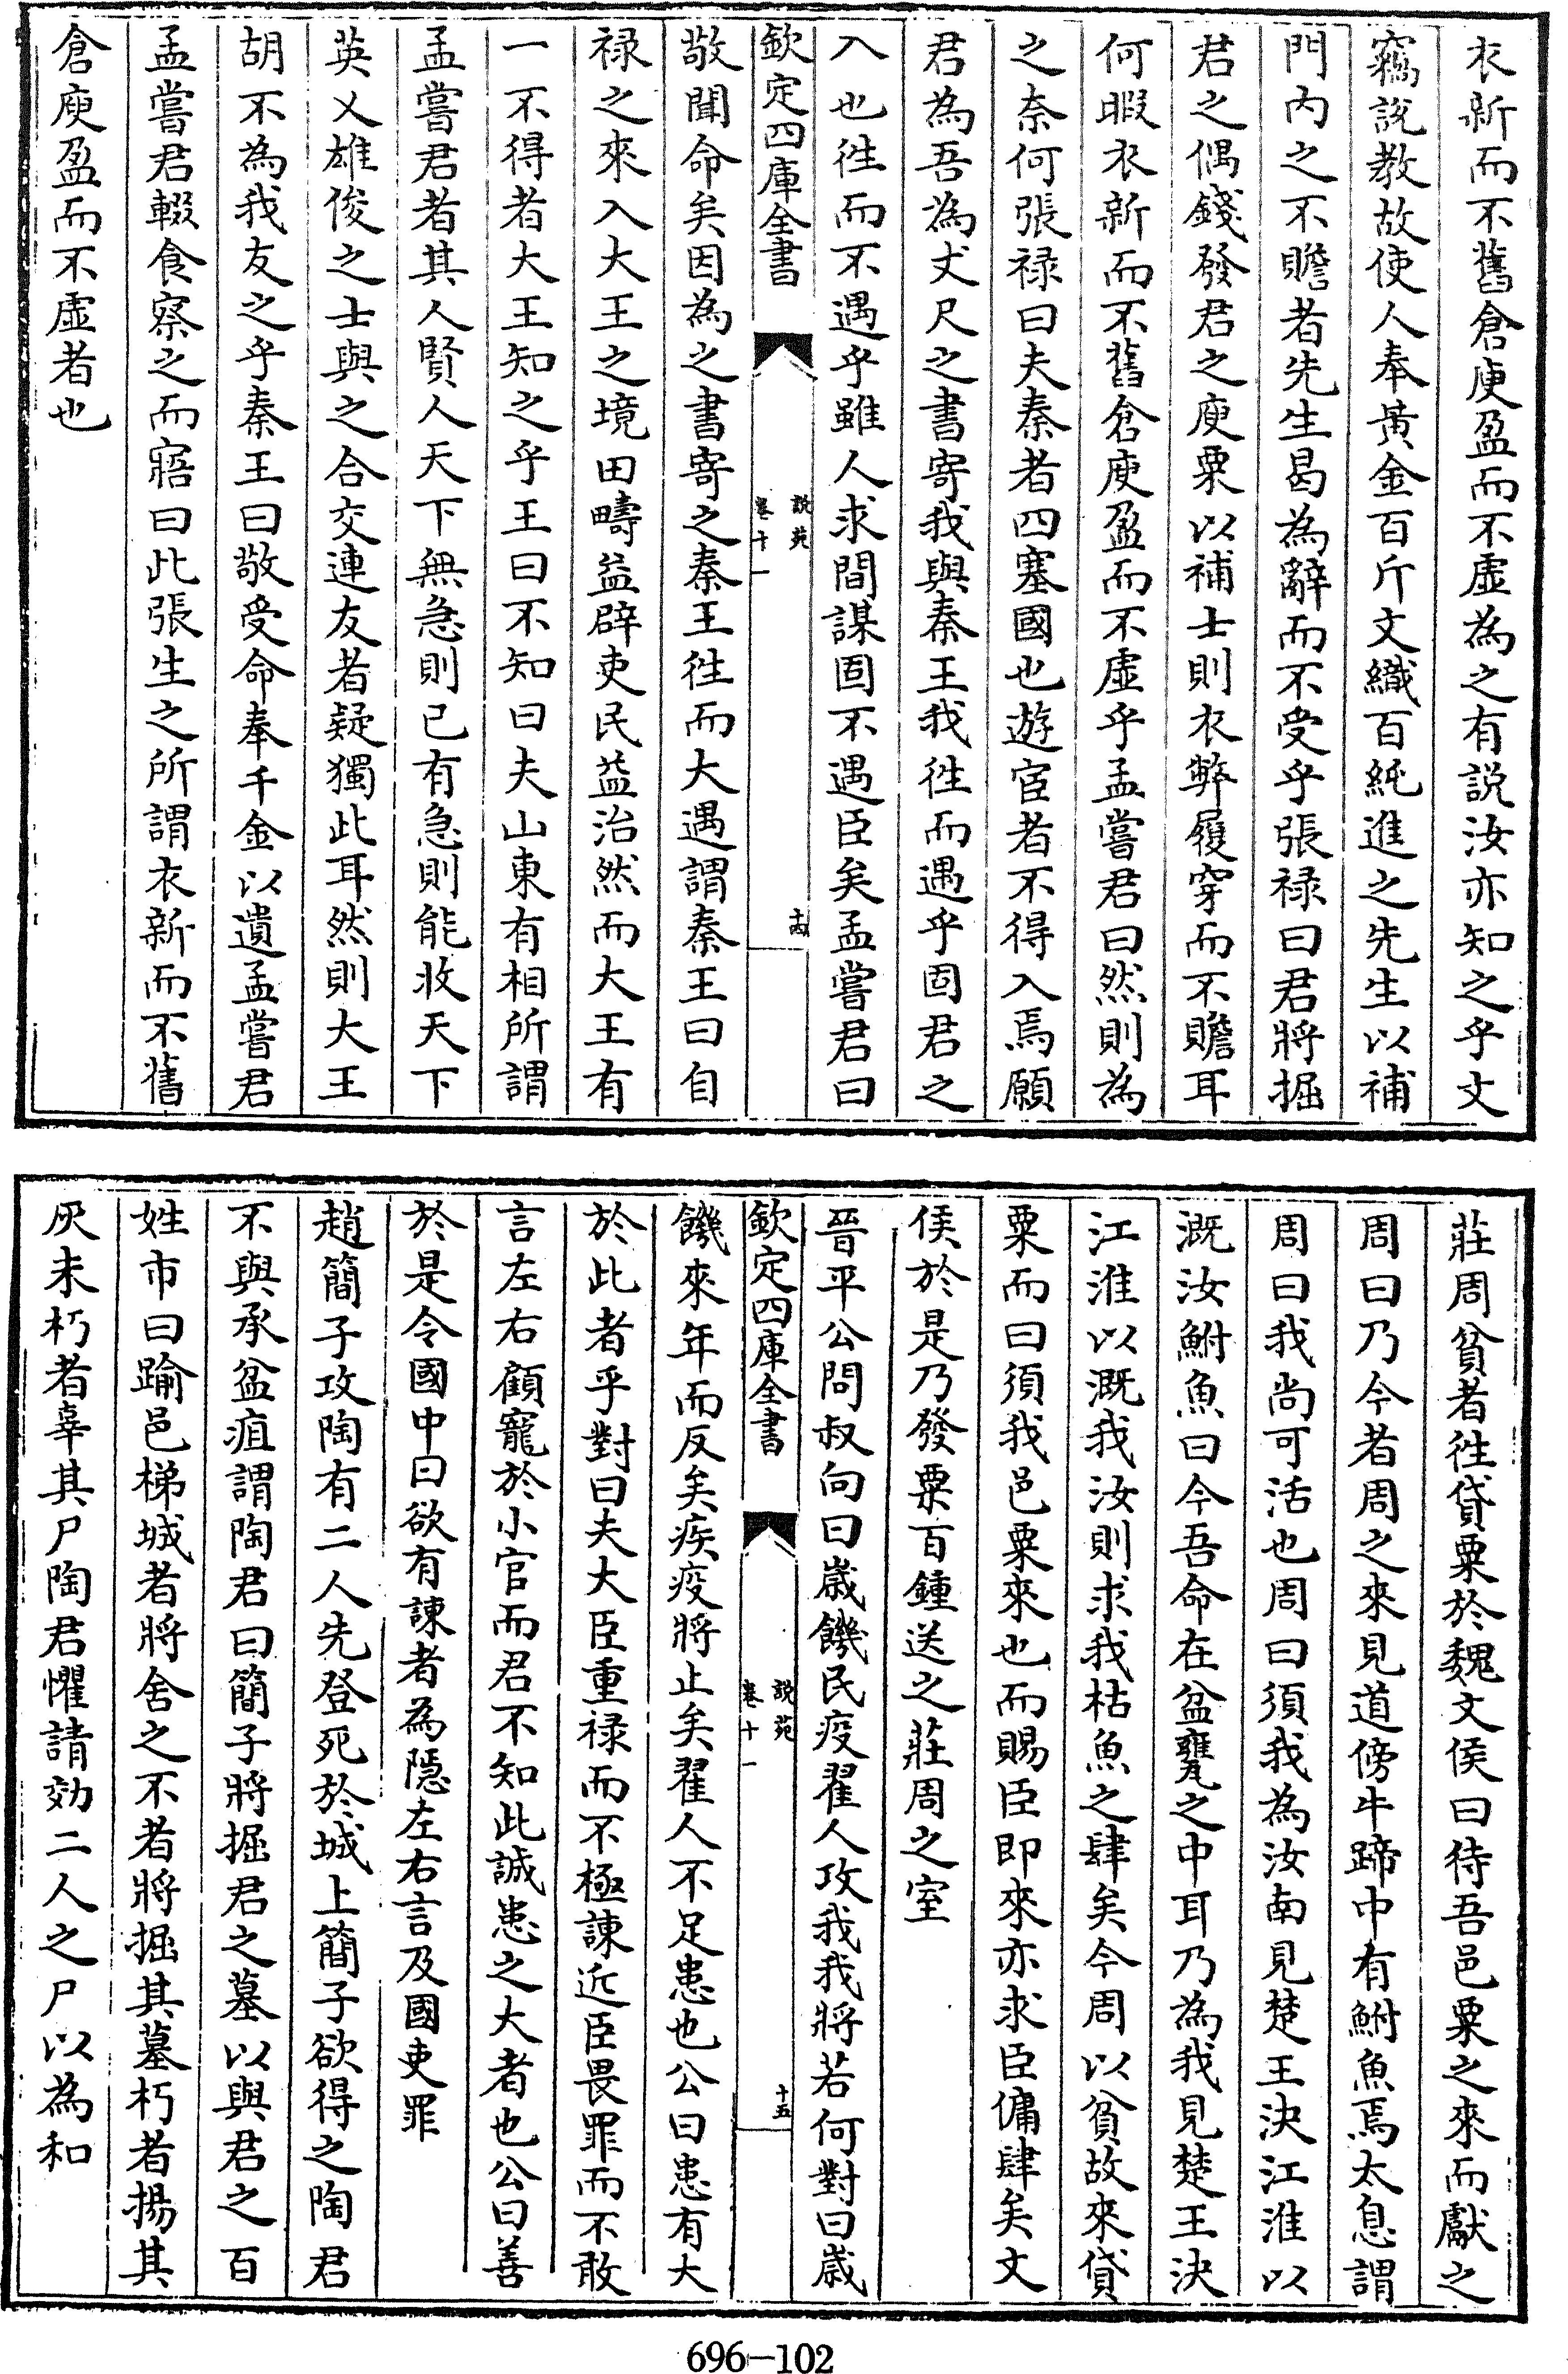 衣新而不舊倉庾盈而不虛為之有説汝亦知之乎文
竊説教故使人奉黃金百斤文織百純進之先生以補
門内之不贍者先生曷為辭而不受乎張禄曰君將掘
君之偶錢發君之庾粟以補士則衣弊履穿而不贍耳
何暇衣新而不舊倉庾盈而不虛乎孟嘗君曰然則為
之奈何張禄曰夫秦者四塞國也遊宦者不得入焉願
君為吾為丈尺之書寄我與秦王我徃而遇乎固君之
入也徃而不遇乎雖人求間謀固不遇臣矣孟嘗君曰
欽定四庫全書
説苑
卷十一
十四
敬聞命矣因為之書寄之秦王徃而大遇謂秦王曰自
禄之來入大王之境田疇益辟吏民益治然而大王有
一不得者大王知之乎王曰不知曰夫山東有相所謂
孟嘗君者其人賢人天下無急則已有急則能收天下
英乂雄俊之士與之合交連友者疑獨此耳然則大王
胡不為我友之乎秦王曰敬受命奉千金以遺孟嘗君
孟嘗君輟食察之而寤曰此張生之所謂衣新而不舊
倉庾盈而不虛者也
莊周貧者徃貸粟於魏文侯曰待吾邑粟之來而獻之
周曰乃今者周之來見道傍牛蹄中有鮒魚焉太息謂
周曰我尚可活也周曰須我為汝南見楚王決江淮以
溉汝鮒魚曰今吾命在盆甕之中耳乃為我見楚王決
江淮以溉我汝則求我枯魚之肆矣今周以貧故來貸
粟而曰須我邑粟來也而賜臣即來亦求臣傭肆矣文
侯於是乃發粟百鍾送之莊周之室
晉平公問叔向曰嵗饑民疫翟人攻我我將若何對曰嵗
欽定四庫全書
説苑
卷十一
十五
饑來年而反矣疾疫將止矣翟人不足患也公曰患有大
於此者乎對曰夫大臣重禄而不極諫近臣畏罪而不敢
言左右顧寵於小官而君不知此誠患之大者也公曰善
於是令國中曰欲有諫者為隱左右言及國吏罪
趙簡子攻陶有二人先登死於城上簡子欲得之陶君
不與承盆疽謂陶君曰簡子將掘君之墓以與君之百
姓市曰踰邑梯城者將舍之不者將掘其墓朽者揚其
灰未朽者辜其尸陶君懼請効二人之尸以為和
696-102